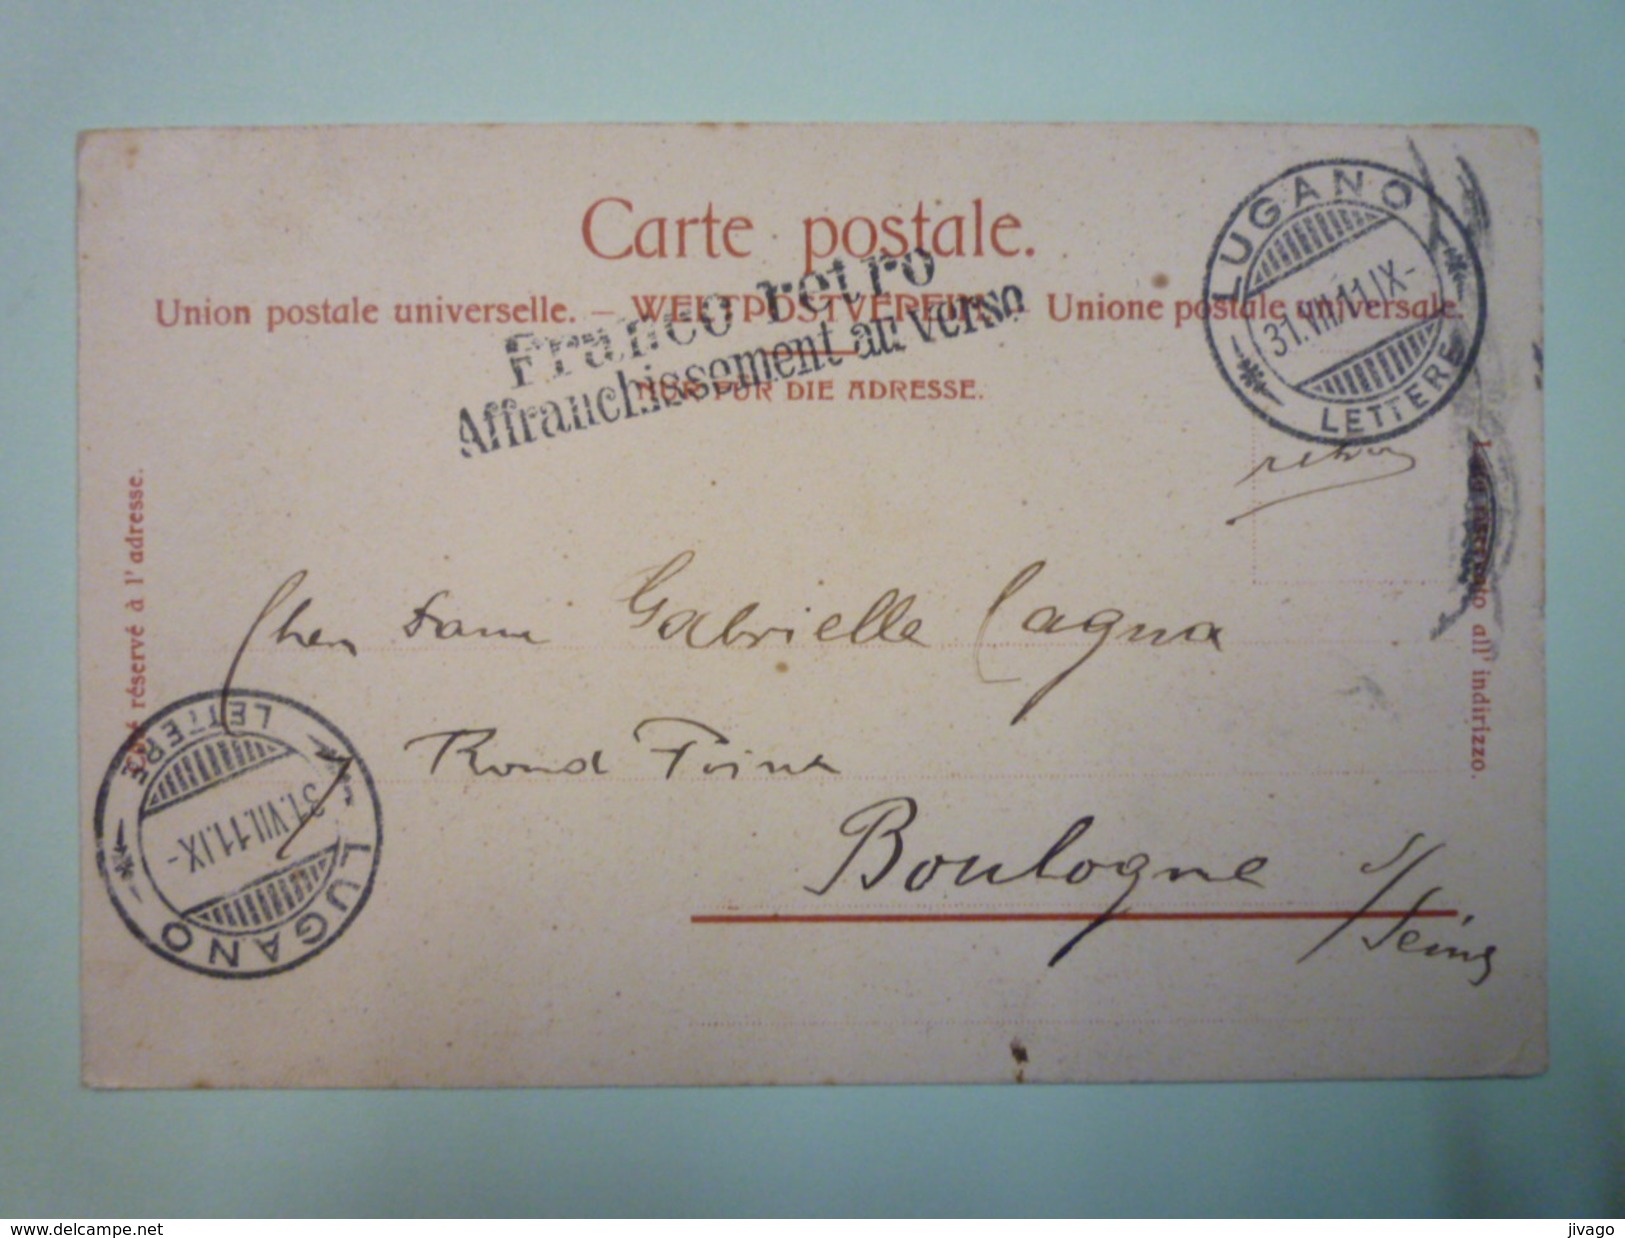 Carte postale.
Union postale universelle. — WELTPOSTVEREIN — Unione postale universale.
NUR FÜR DIE ADRESSE.
Franco retro
Affranchissement au verso
LUGANO
31.VII.11.IX-
LETTERE
retro
Côté réservé à l'adresse.
Lato riservato all'indirizzo.
Gabrielle Cagna
Rond
Boulogne s/
Seine
LETTERE
31.VII.11.IX-
LUGANO
www.delcampe.net
jivago